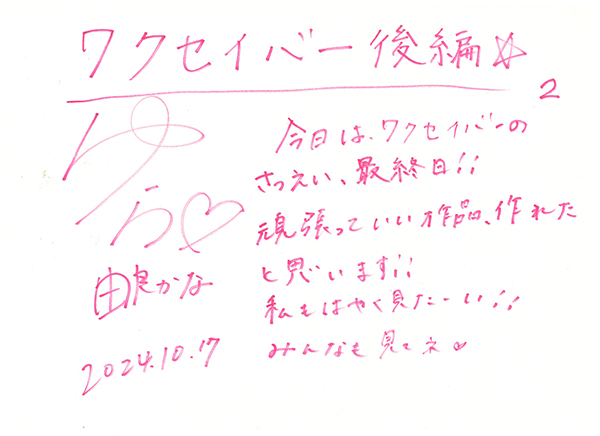 ワクセイバー後編☆
2
今日は、ワクセイバーの
さつえい、最終日!!
頑張っていい作品、作れた
と思います!!
私もはやく見たーい!!
みんなも見てネ♡
由良かな
2024.10.17